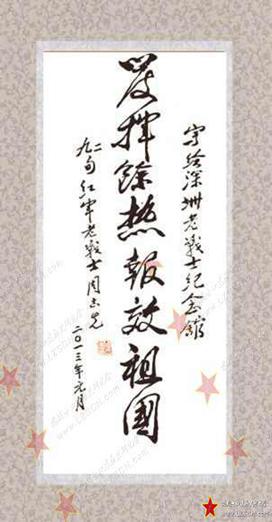 写给深圳老战士纪念馆
发挥餘热報效祖國
九二旬红军老战士周志先
二〇一三年元月